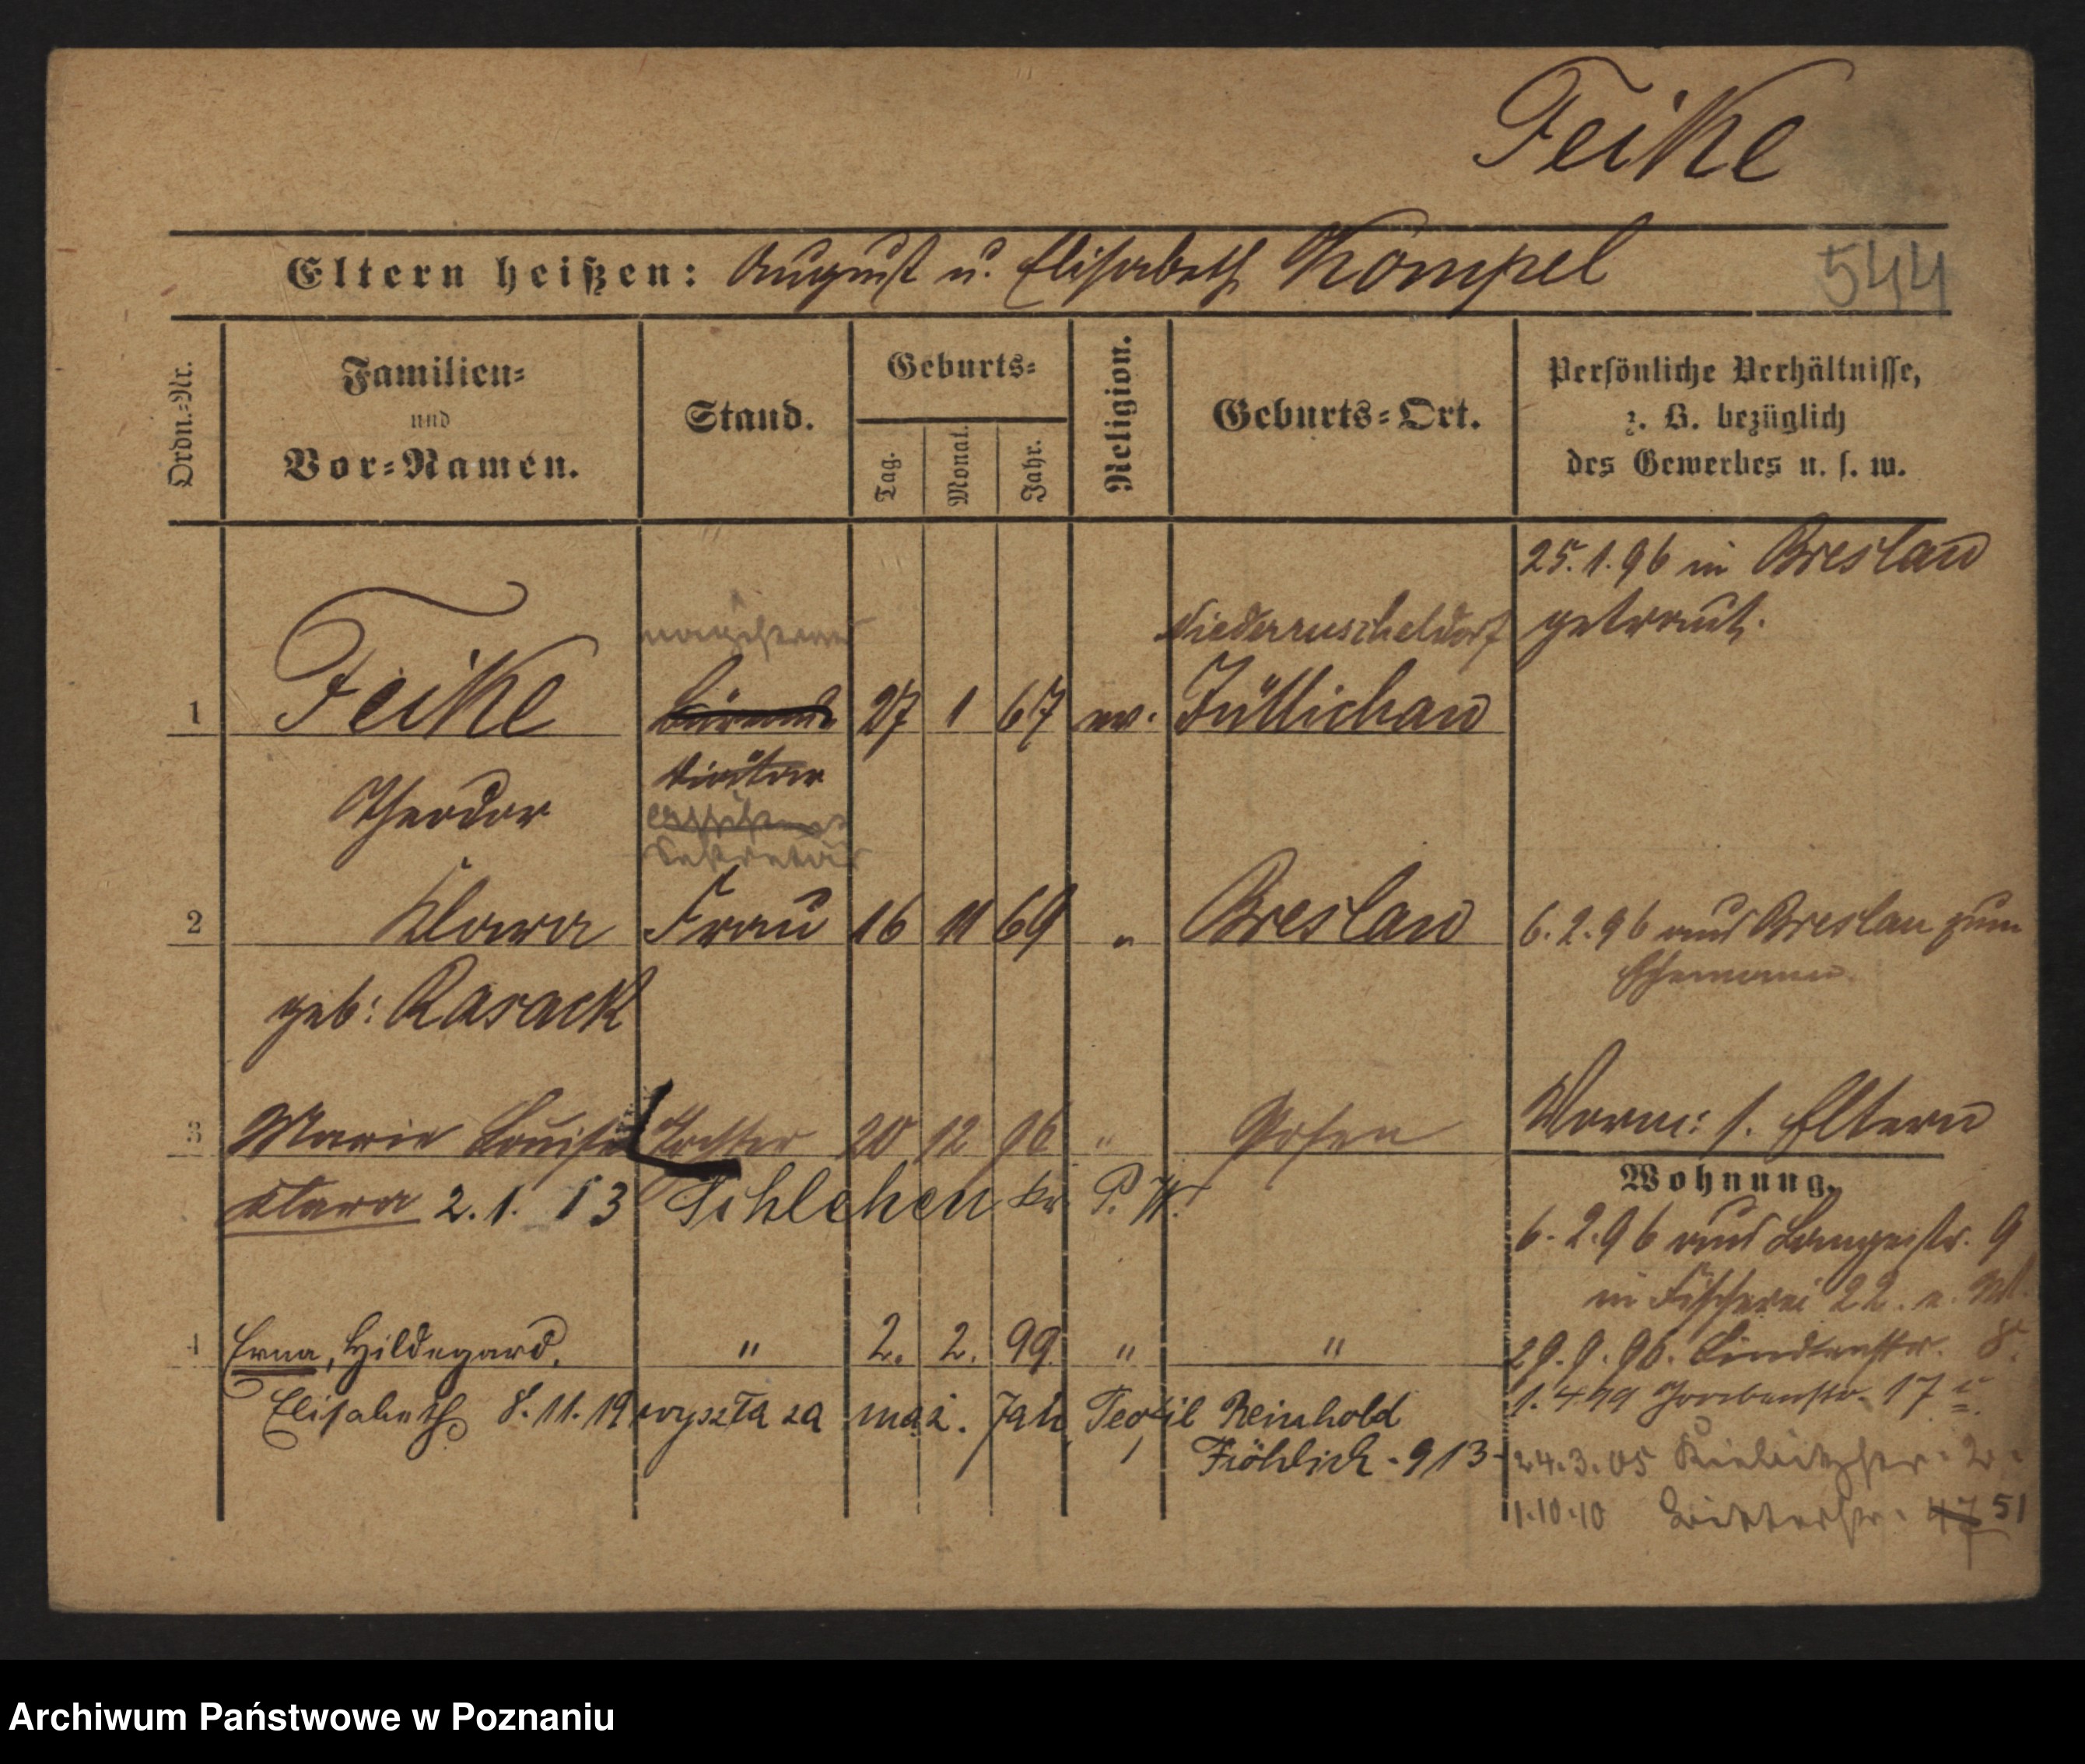 Feike
Eltern heißen: August u. Elisabeth Kompel
544
Ordn.=Nr.
Familien=
und
Vor=Namen.
Stand.
Geburts=
Tag.
Monat.
Jahr.
Religion.
Geburts=Ort.
Persönliche Verhältnisse,
z. B. bezüglich
des Gewerbes u. s. w.
25. 1. 96 in Breslau
getraut.
1 Feike 27 1 67 ev. Züllichau
Theodor
Diätar
Sekretär
2 Klara Frau 16 11 69 " Breslau
6. 2. 96 aus Breslau zum
Ehemann
geb: Rasack
3 Marie Louise Tochter 20 12 96 " Posen
Klara 2. 1. 13 Schlehen Kr. P. W.
Vorm: s. Eltern
Wohnung.
6. 2. 96 aus Langestr. 9
in Fischerei 22.
4 Erna, Hildegard. " 2. 2. 99 " "
29. 9. 96. Lindenstr. 8.
Elisabeth 8. 11. 19 wyszła za mąż. Jan Teofil Reinhold
Fröhlich - 913 -
1. 4 99 Grabenstr. 17
24. 3. 05
1. 10. 10 Ritterstr. 47 51
Archiwum Państwowe w Poznaniu